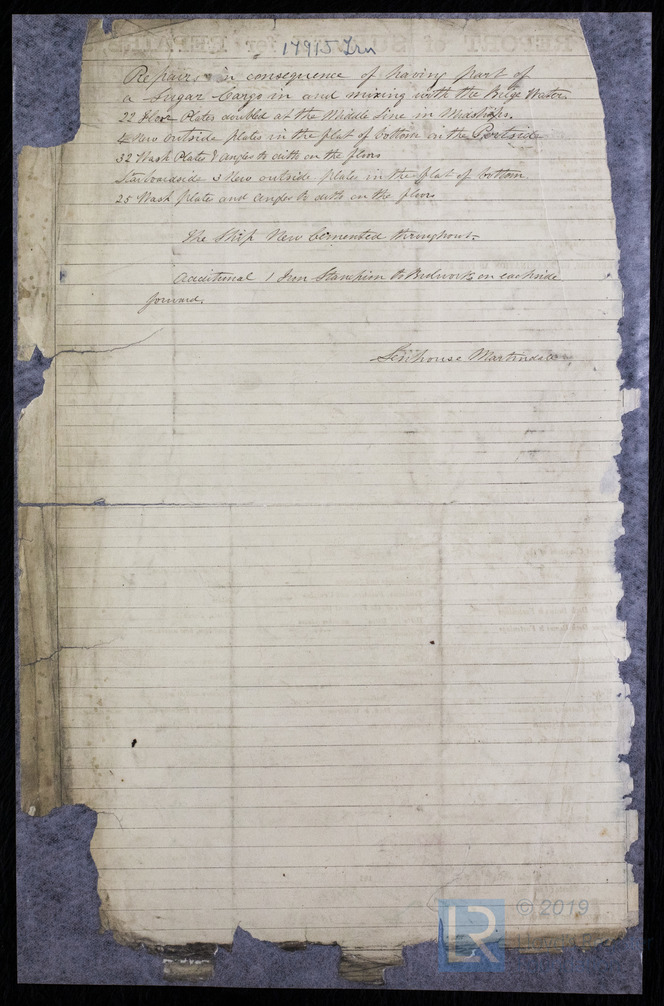 17915 Irn
Repairs in consequence of having part of
a Sugar Cargo in and mixing with the Bilge Water
22 Floor Plates doubled at the Middle Line in Midships.
4 New outside plates in the flat of bottom on the Portside
32 Wash Plates & angles to ditto on the floors
Starboardside 3 New outside plates in the flat of bottom
25 Wash plates and angles to ditto on the floors
The Ship New Cemented throughout
Additional 1 Iron Stanchion to Bulworks on each side
forward.
Senhouse Martindale
© 2019
LR